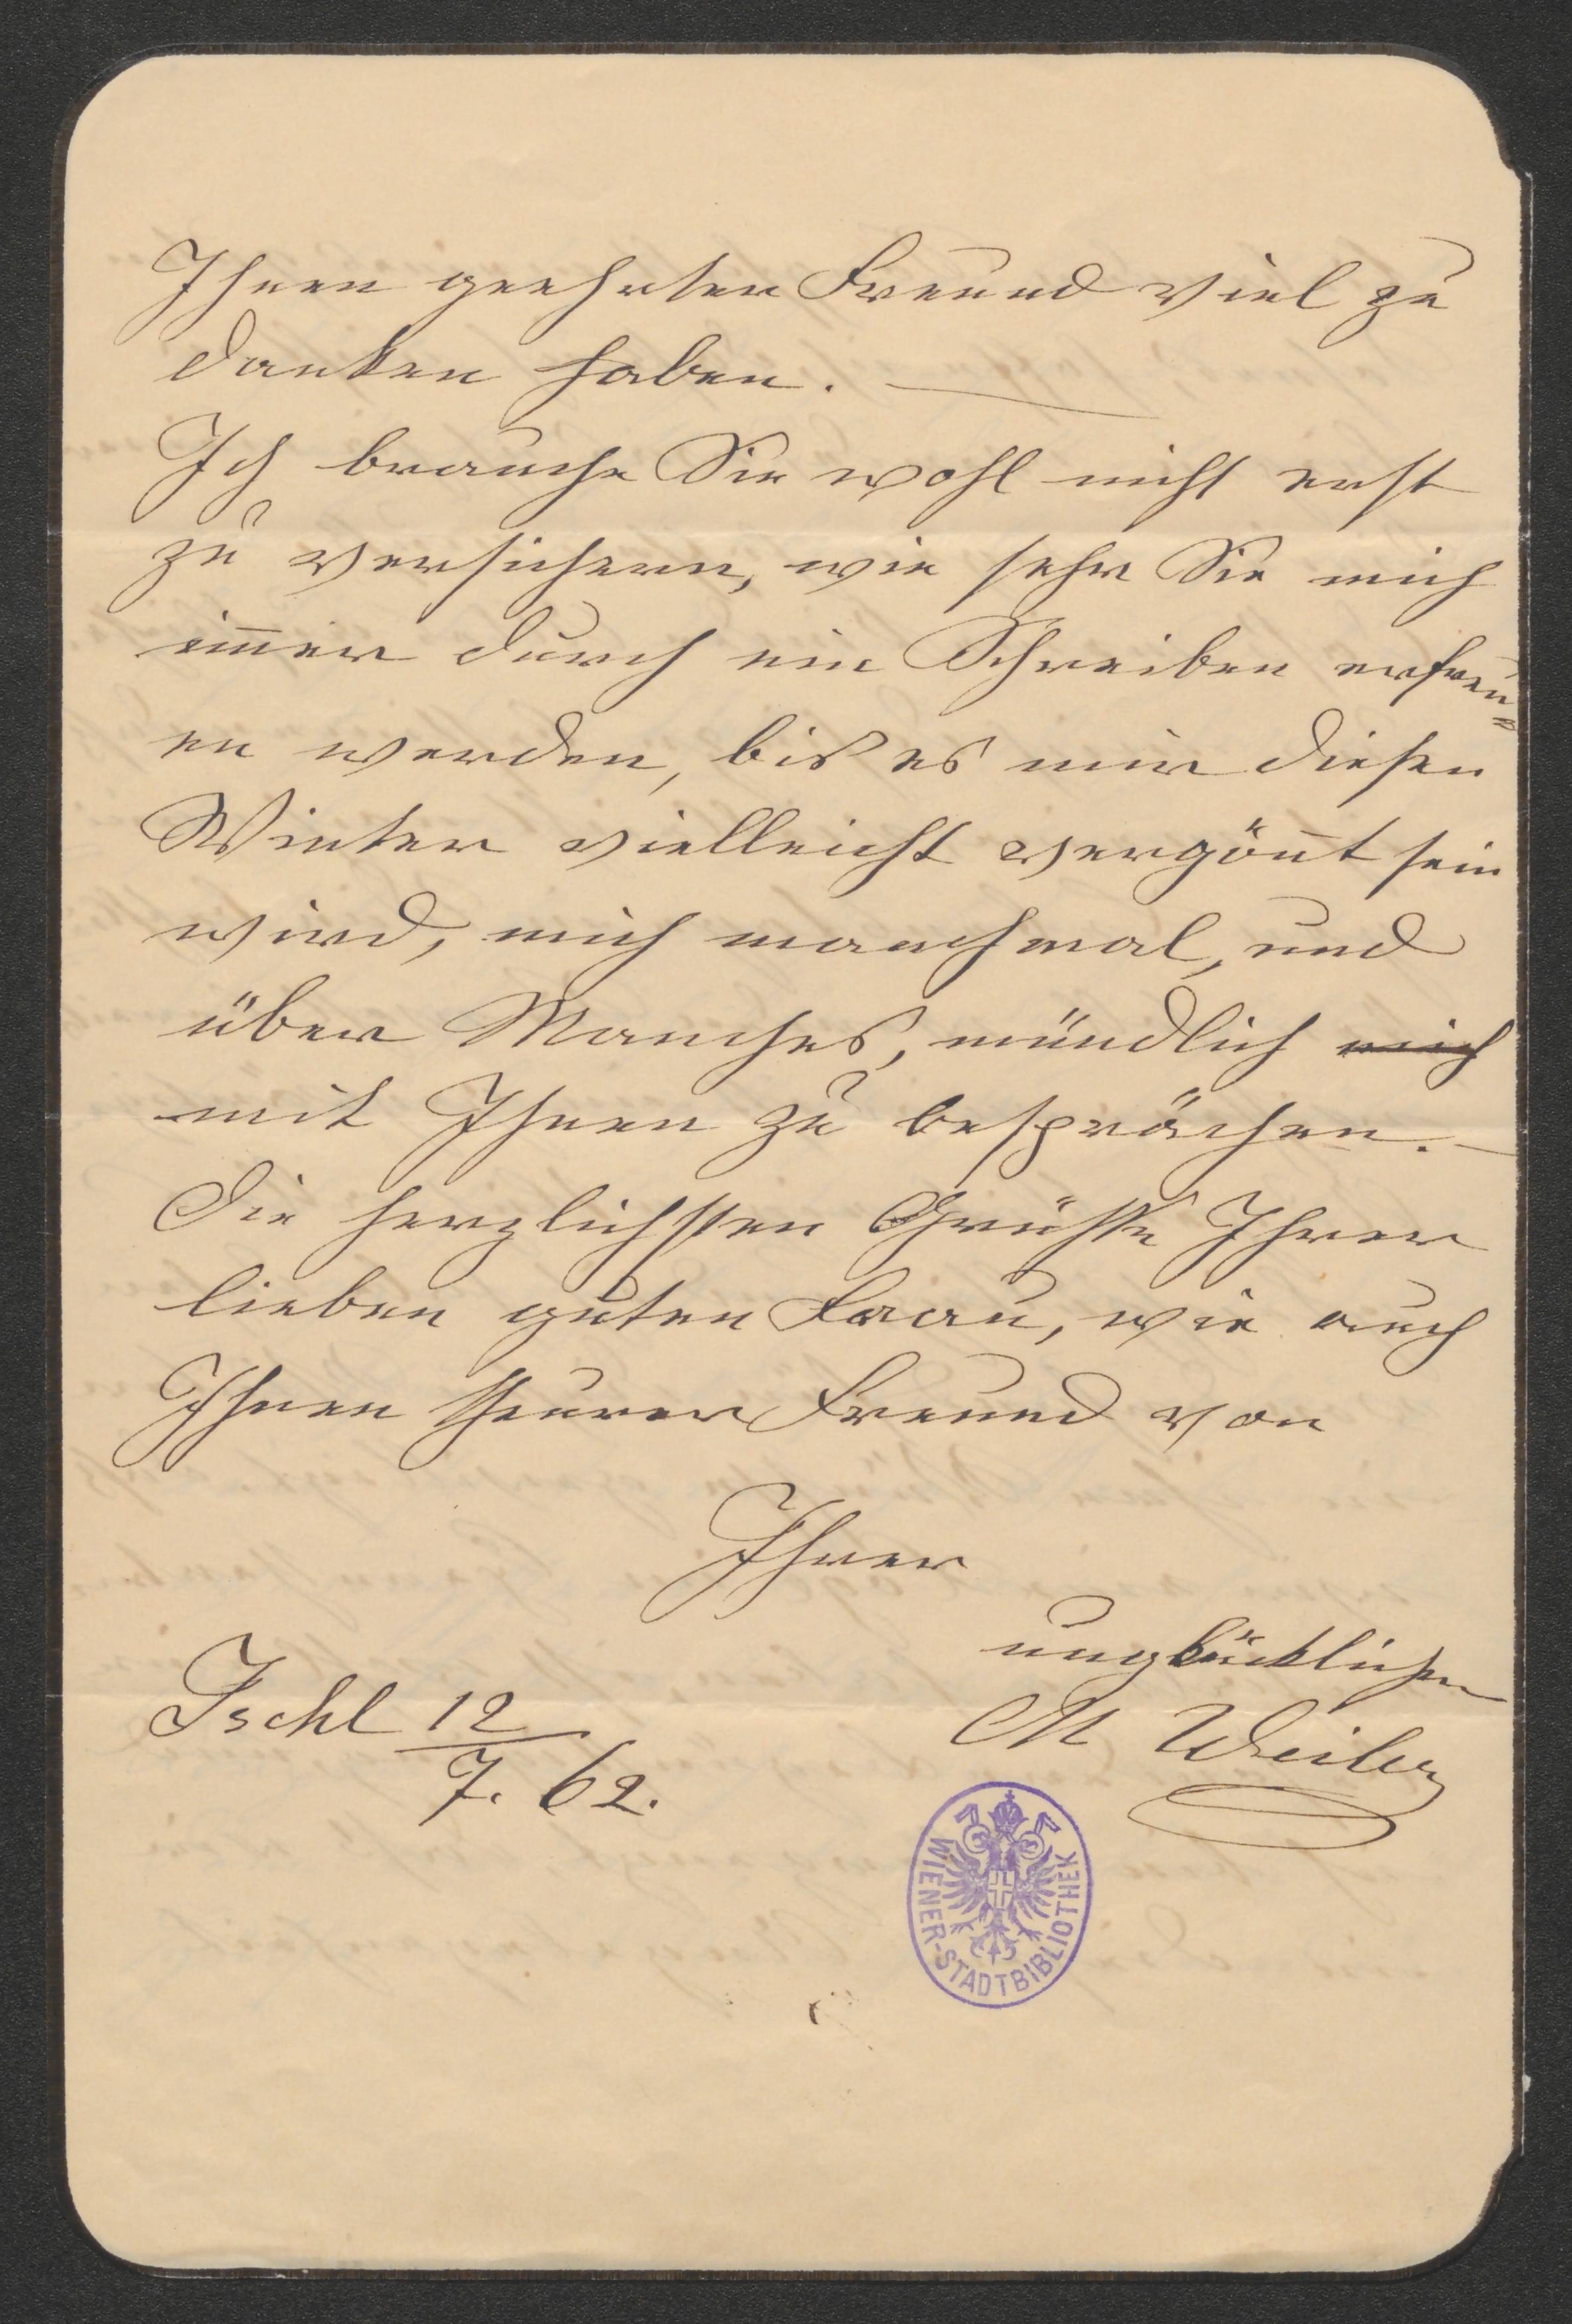 Ihnen geehrter Freund viel zu
danken haben. —
Ich brauche Sie wohl nicht erst
zu versichern, wie sehr Sie mich
im̅er durch ein Schreiben erfreu=
en werden, bis es mir diesen
Winter vielleicht vergön̅t sein
wird, mich manchmal, und
über Manches, mündlich mich
mit Ihnen zu besprächen. —
Die herzlichsten Grüsse Ihrer
lieben guten Frau, wie auch
Ihnen theurer Freund von
Ihrer
unglücklichen
M Weiler
Ischl 12
7. 62.
WIENER-STADTBIBLIOTHEK